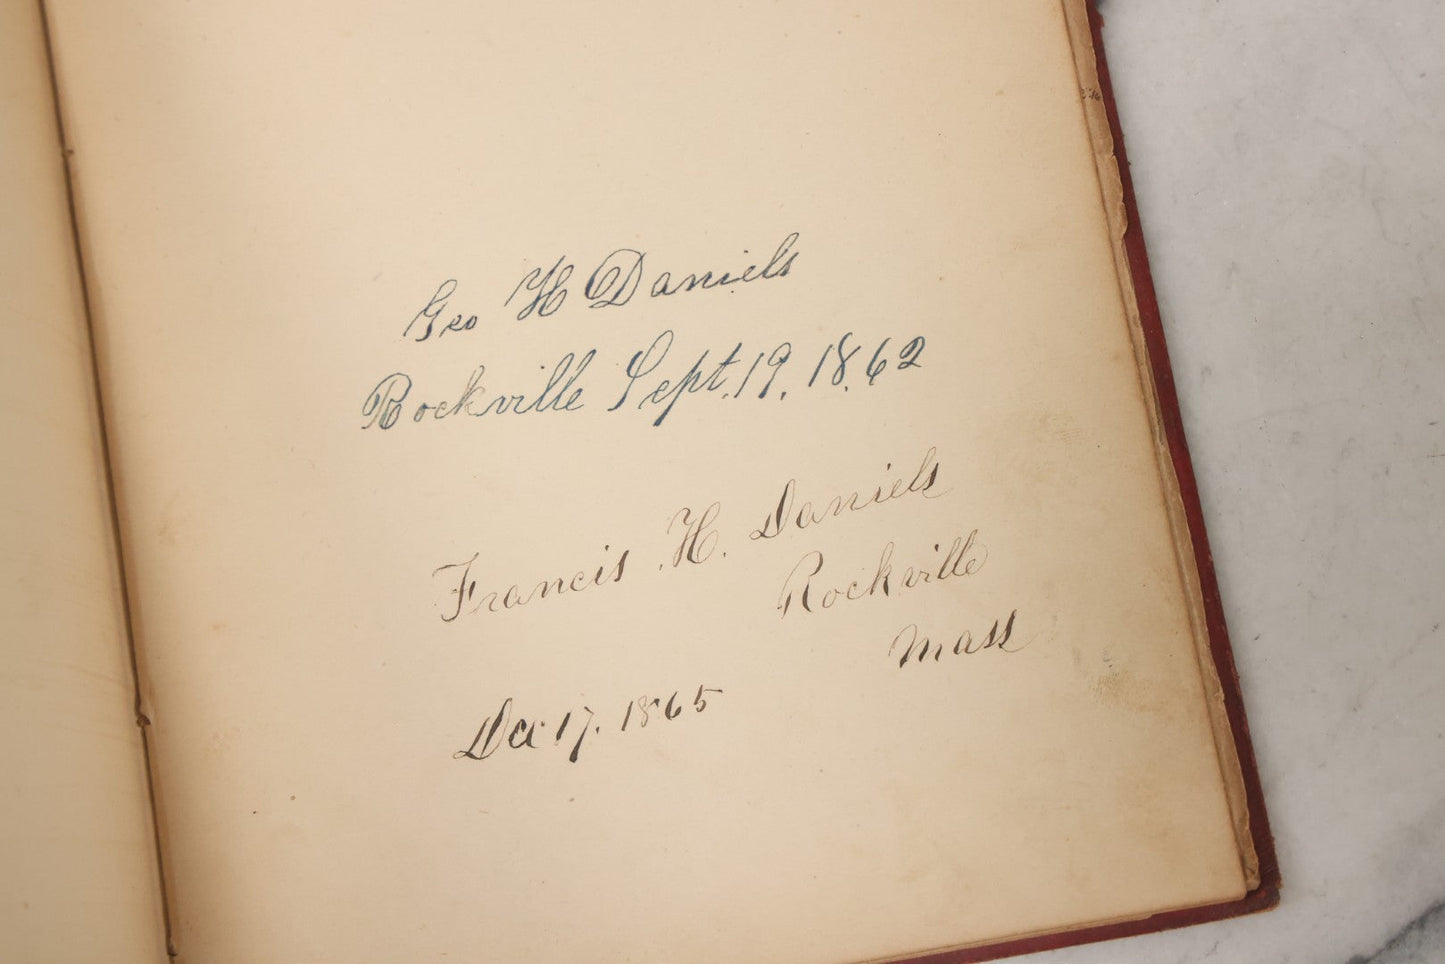 Geo H Daniels
Rockville Sept. 19. 18.62
Francis . H. Daniels
Rockville
Mass
Dec 17. 1865